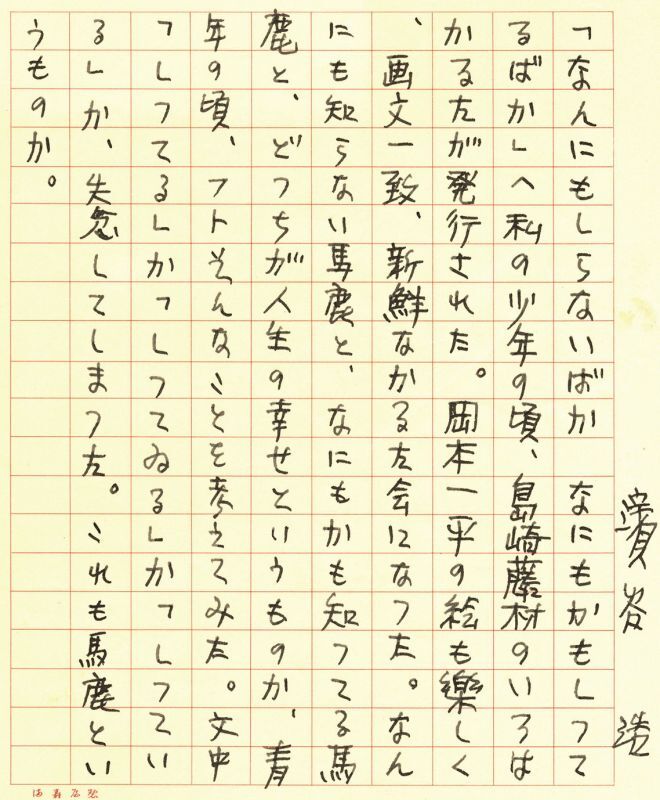 濱谷 浩
「なんにもしらないばか　なにもかもしつて
るばか」へ私の少年の頃、島崎藤村のいろは
かるたが発行された。岡本一平の絵も樂しく
、画文一致、新鮮なかるた会になつた。なん
にも知らない馬鹿と、なにもかも知つてる馬
鹿と、どつちが人生の幸せというものか、青
年の頃、フトそんなことを考えてみた。文中
「しつてる」か「しつてゐる」か「しつてい
る」か、失念してしまつた。これも馬鹿とい
うものか。